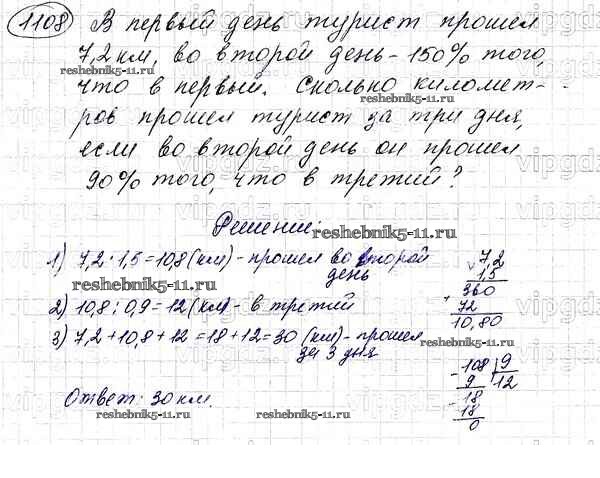 1108 В первый день турист прошел
7,2 км, во второй день - 150% того,
что в первый. Сколько километ-
ров прошел турист за три дня,
если во второй день он прошел
90% того, что в третий?
Решение:
1) 7,2 · 1,5 = 10,8 (км) - прошел во второй
день
2) 10,8 : 0,9 = 12 (км) - в третий
3) 7,2 + 10,8 + 12 = 18 + 12 = 30 (км) - прошел
за 3 дня
Ответ: 30 км.
7,2
1,5
360
+ 72
10,80
- 108 9
9 12
- 18
18
0
reshebnik5-11.ru
reshebnik5-11.ru
reshebnik5-11.ru
reshebnik5-11.ru
reshebnik5-11.ru
reshebnik5-11.ru
reshebnik5-11.ru